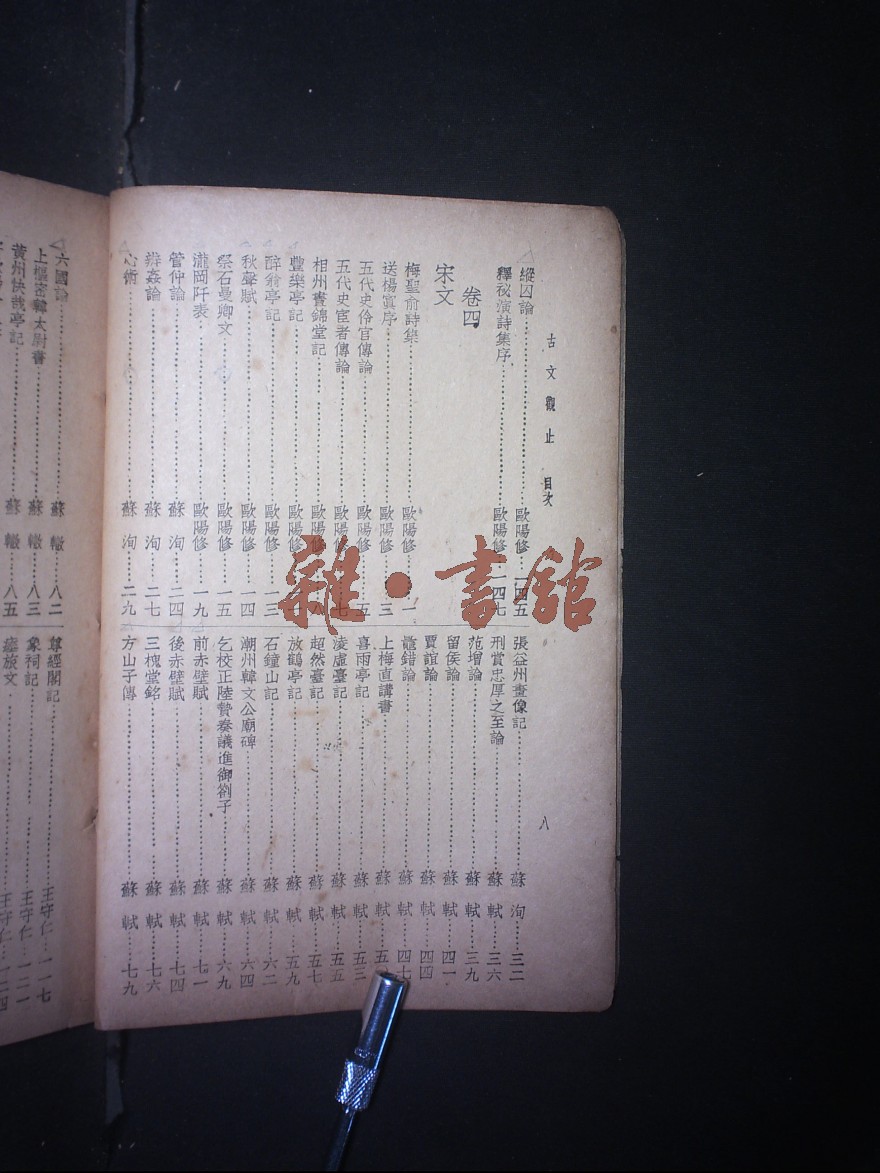 古文觀止 目次 八
縱囚論……歐陽修……一四五
釋祕演詩集序……歐陽修……一四七
卷四
宋文
梅聖俞詩集……歐陽修……一
送楊寘序……歐陽修……三
五代史伶官傳論……歐陽修……五
五代史宦者傳論……歐陽修……七
相州晝錦堂記……歐陽修……八
豐樂亭記……歐陽修
醉翁亭記……歐陽修……一三
秋聲賦……歐陽修……一四
祭石曼卿文……歐陽修……一五
瀧岡阡表……歐陽修……一九
管仲論……蘇洵……二四
辨姦論……蘇洵……二七
心術……蘇洵……二九
張益州畫像記……蘇洵……三二
刑賞忠厚之至論……蘇軾……三六
范增論……蘇軾……三九
留侯論……蘇軾……四一
賈誼論……蘇軾……四四
鼂錯論……蘇軾……四七
上梅直講書……蘇軾……五
喜雨亭記……蘇軾……五三
凌虛臺記……蘇軾……五五
超然臺記……蘇軾……五七
放鶴亭記……蘇軾……五九
石鐘山記……蘇軾……六二
潮州韓文公廟碑……蘇軾……六四
乞校正陸贄奏議進御劄子……蘇軾……六九
前赤壁賦……蘇軾……七一
後赤壁賦……蘇軾……七四
三槐堂銘……蘇軾……七六
方山子傳……蘇軾……七九
六國論……蘇轍……八二
上樞密韓太尉書……蘇轍……八三
黃州快哉亭記……蘇轍……八五
尊經閣記……王守仁……一一七
象祠記……王守仁……一二一
瘞旅文……王守仁……一二四
雜·書館